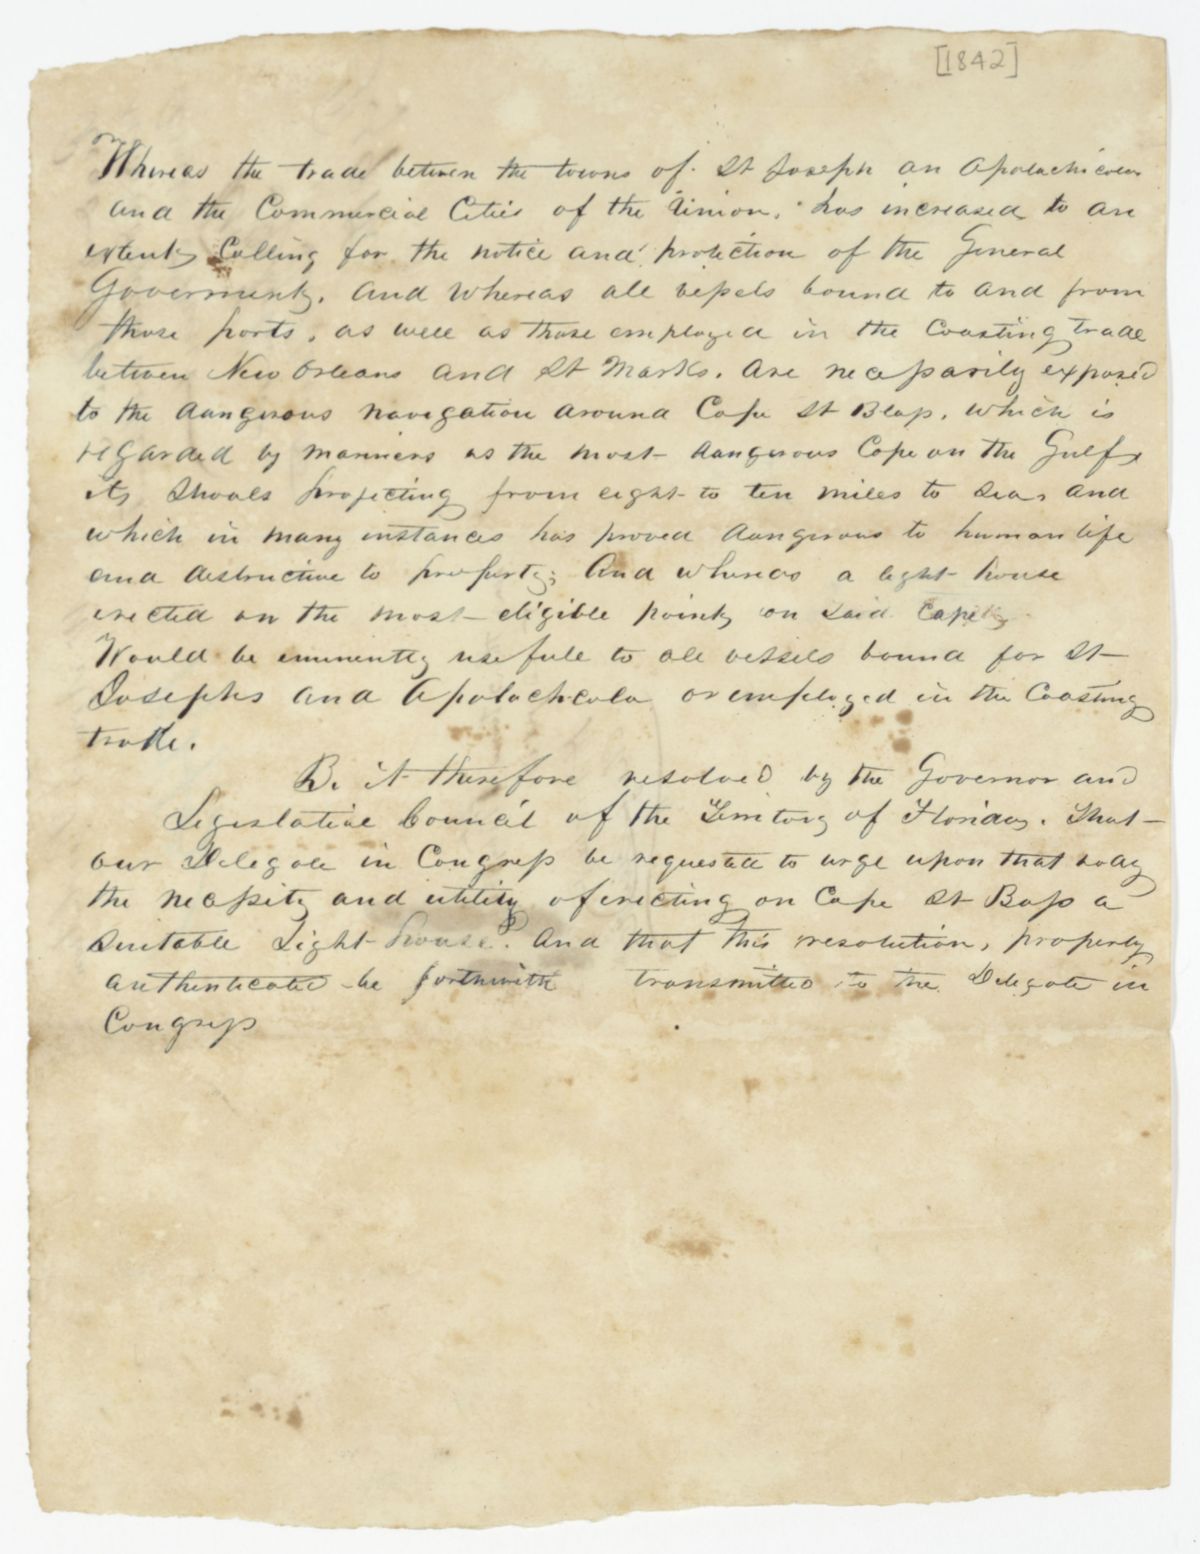 [1842]
Whereas the trade between the towns of St Joseph an Apolachicola
and the Commercial Cities of the Union, has increased to an
extent, Calling for the notice and protection of the General
Government, and whereas all vessels bound to and from
those ports, as well as those employed in the Coasting trade
between New Orleans and St Marks. are necessarily exposed
to the dangerous navigation around Cape St Blass, which is
regarded by mariners as the most dangerous Cape on the Gulf,
its Shoals projecting from eight to ten miles to Sea, and
which in many instances has proved dangerous to human life
and destructive to property; And whereas a light house
erected on the most eligible point, on said Cape
Would be eminently usefull to all vessels bound for St
Josephs and Apolachcola or employed in the Coasting
trade.
Be it therefore resolved by the Governor and
Legislative Council of the Territory of Florida, That
our Delegate in Congress be requested to urge upon that body
the necessity and utility of erecting on Cape St Bass a
Suitable Light house. And that this resolution, properly
authenticated be forthwith transmitted to the Delegate in
Congress